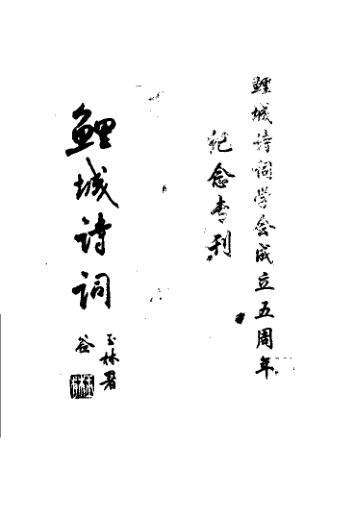 鲤城诗词学会成立五周年
纪念专刊
鲤城诗词
玉林署